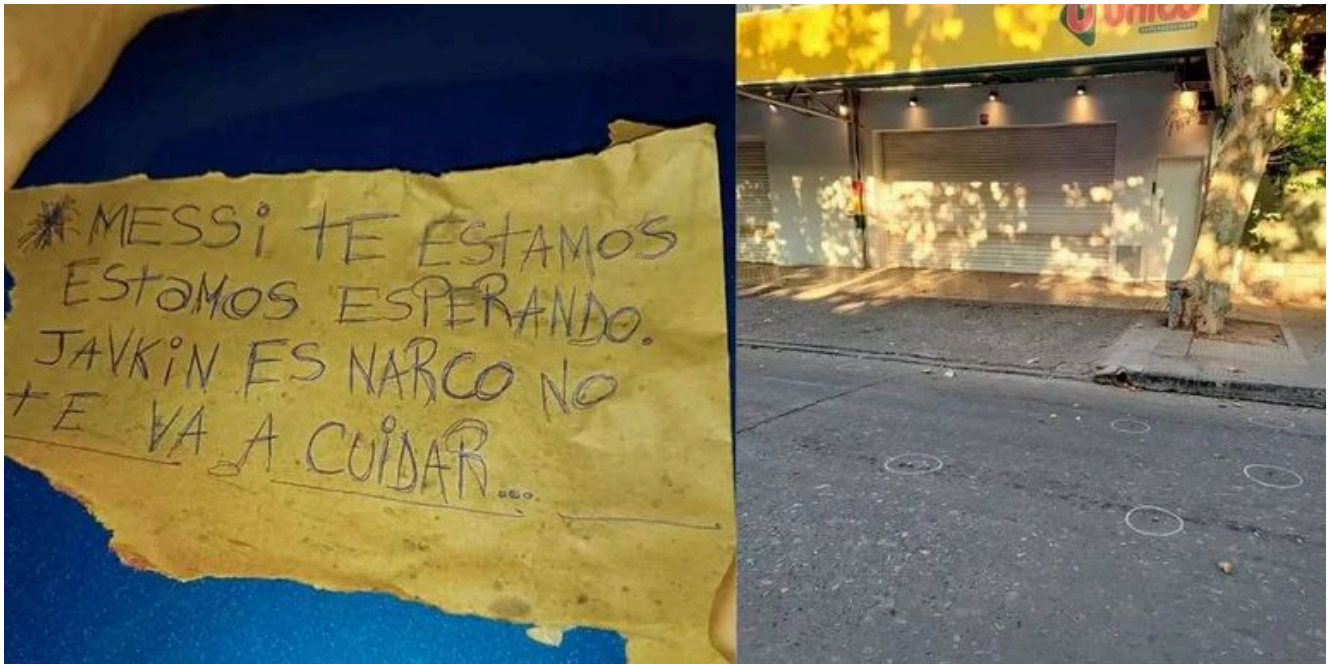 * MESSi tE EStAMOS
EStaMOS ESPERANDO.
JAVKiN ES NARCO NO
tE VA A CUiDAR...
UNICO